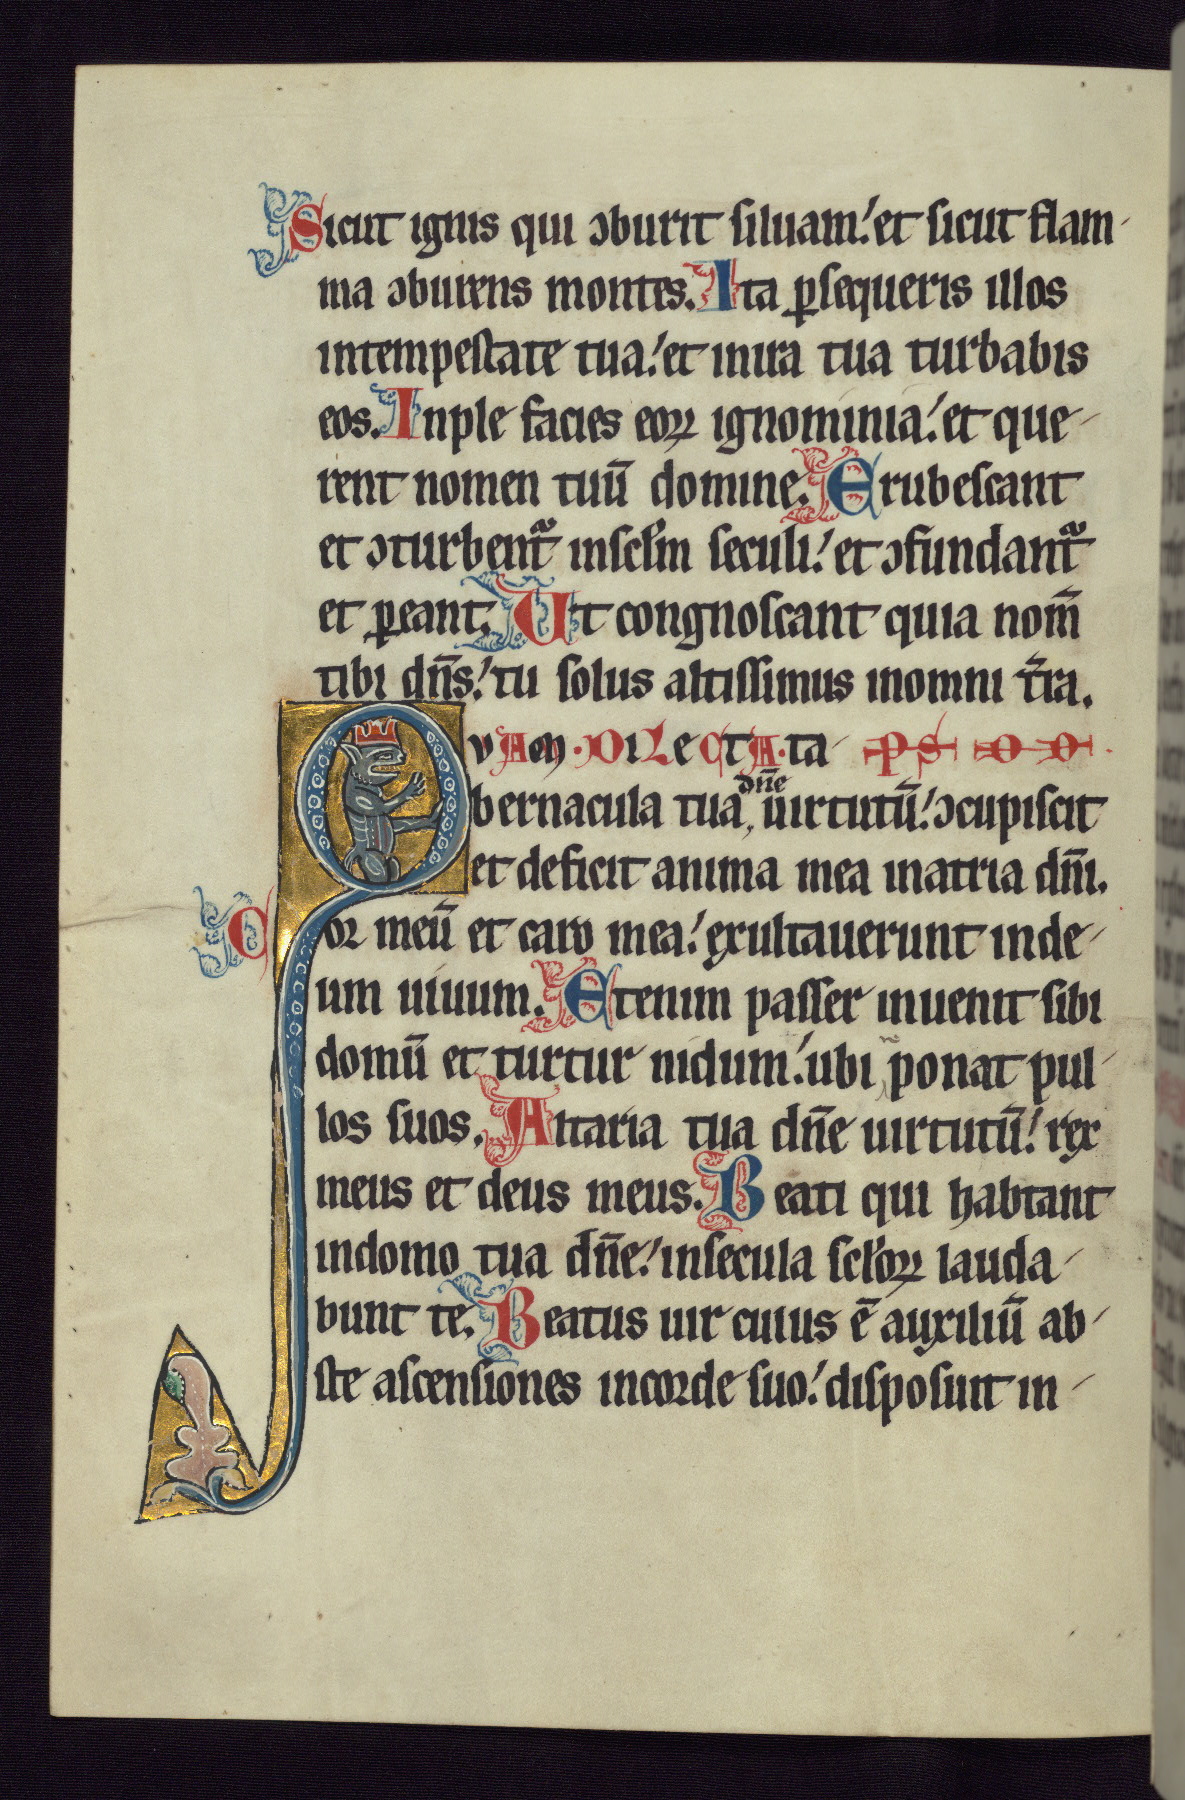 Sicut ignis qui ↄburit siluam. et sicut flam-
ma ↄburens montes. Ita ꝑsequeris illos
intempestate tua. et inira tua turbabis
eos. Inple facies eoꝝ ignominia. et que-
rent nomen tuū domine. Erubescant
et ↄturbentᷓ inscłm seculi. et ↄfundantᷓ
et ꝑeant. Ut congnoscant quia nom̄
tibi dn̄s. tu solus altissimus inomni t̄ra.
QvAm . DiLeCtA . ta- PS DD.
bernacula tua dn̄e uirtutū. ↄcupiscit
et deficit anima mea inatria dn̄i.
Cor meū et caro mea. exultauerunt inde-
um uiuum. Etenim passer inuenit sibi
domū et turtur nidum. ubi ponat pul-
los suos. Altaria tua dn̄e uirtutū. rex
meus et deus meus. Beati qui habtant
indomo tua dn̄e. insecula scłoꝝ lauda-
bunt te. Beatus uir cuius ē auxiliū ab-
ste ascensiones incorde suo. disposuit in-